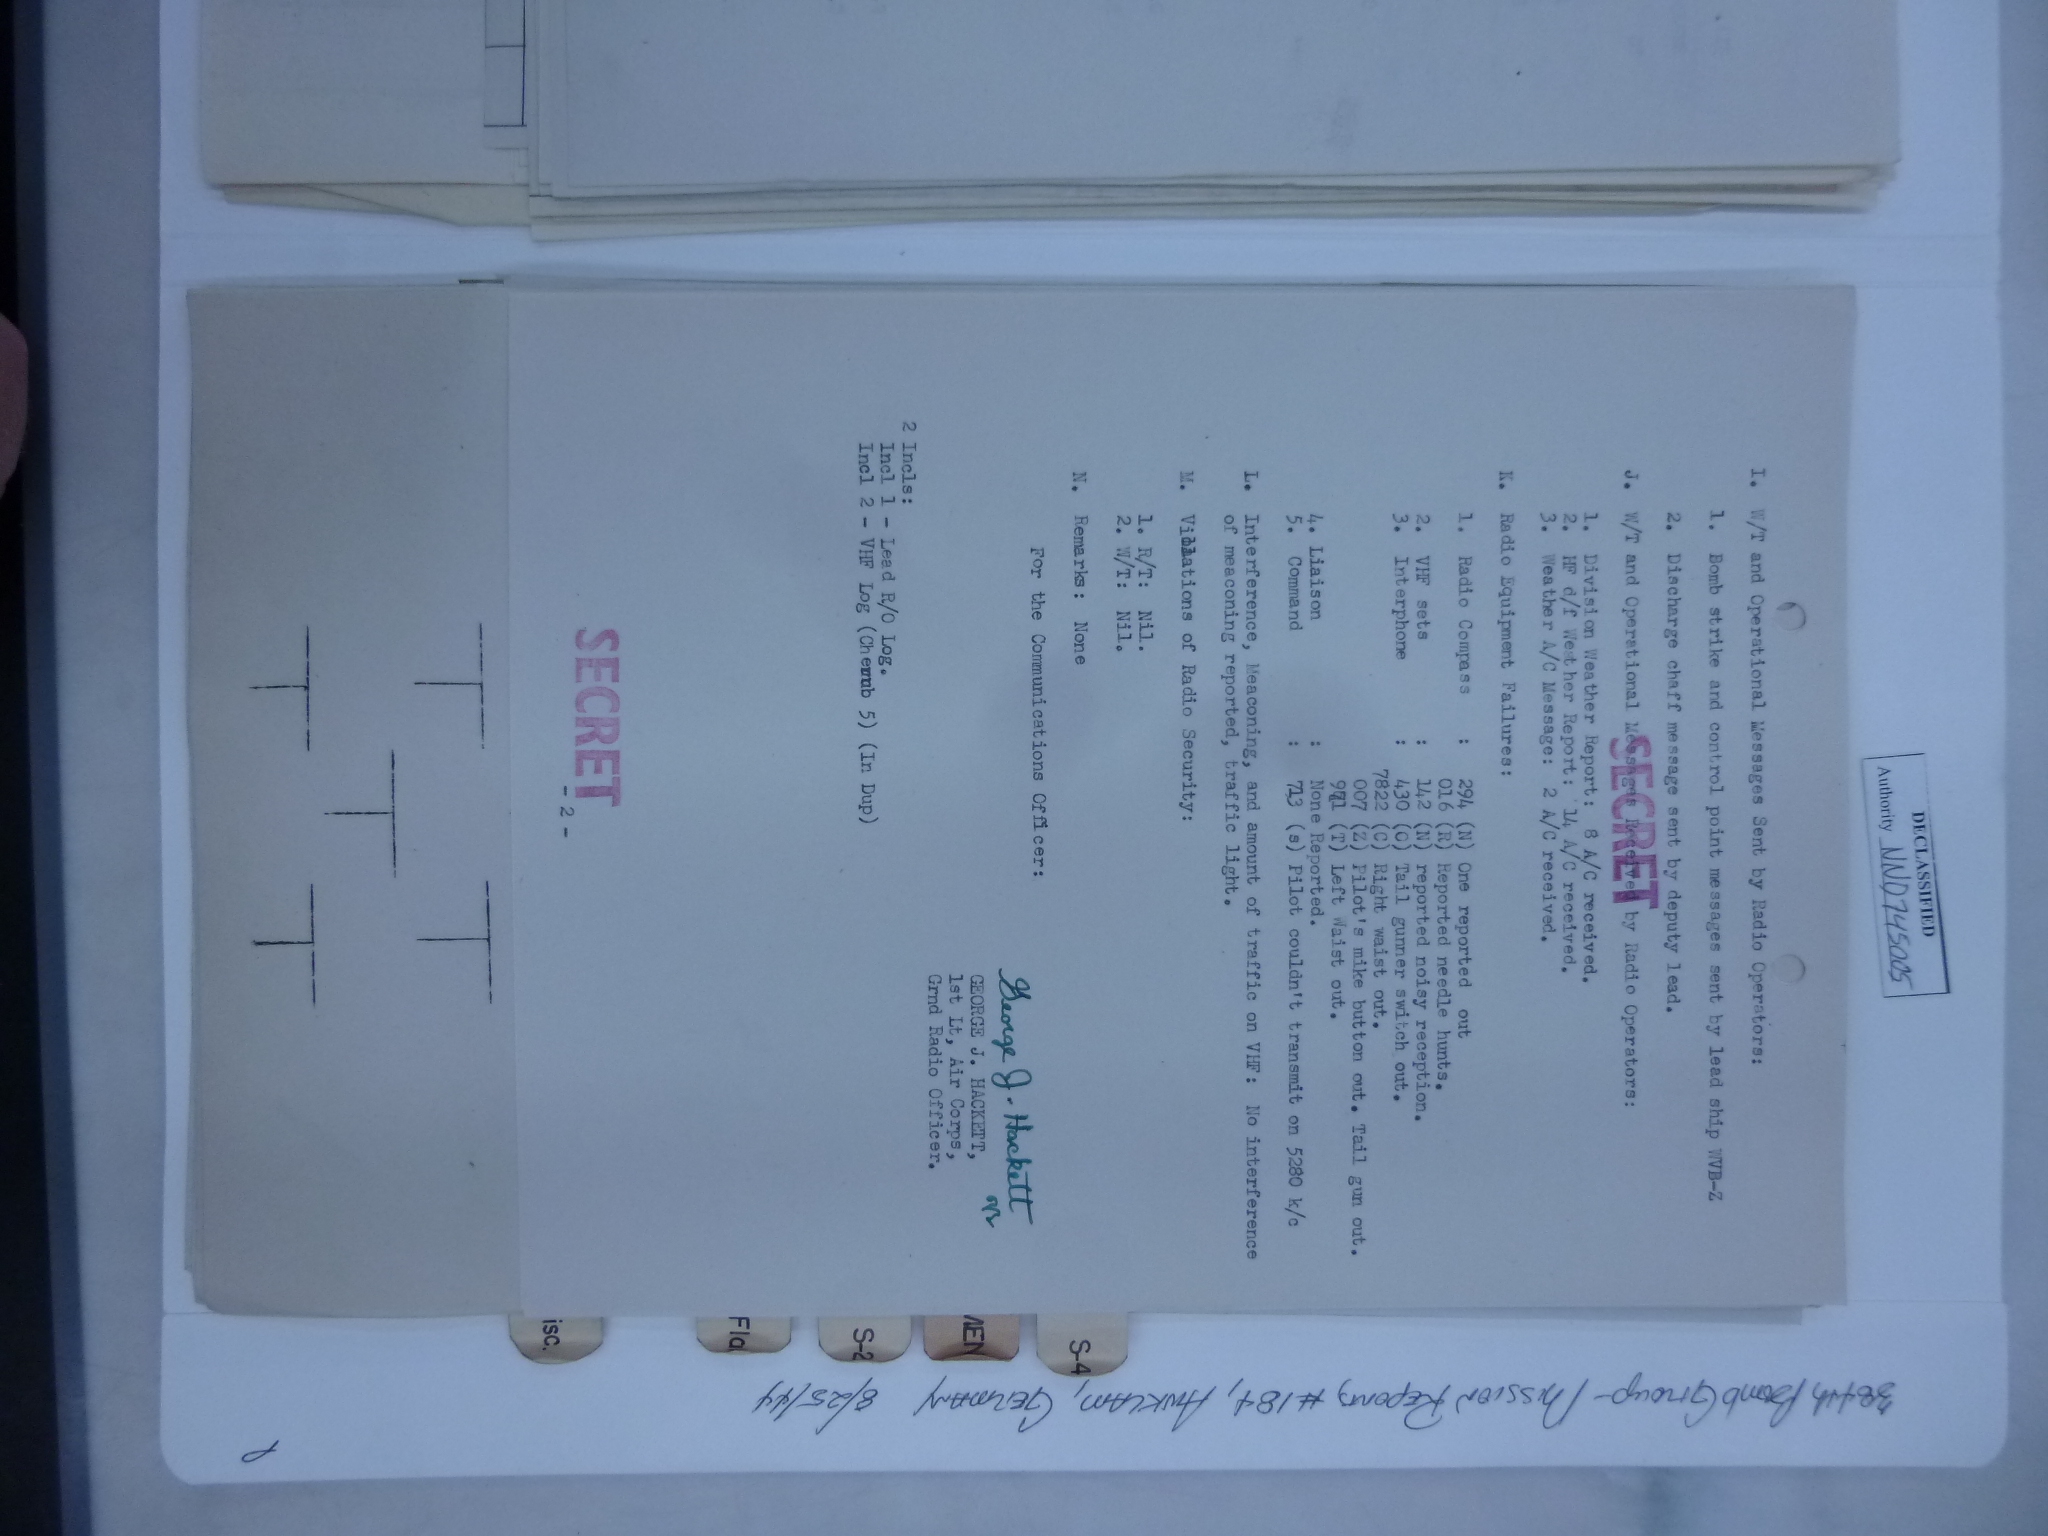 DECLASSIFIED
Authority NND745005
I. W/T and Operational Messages Sent by Radio Operators:
1. Bomb strike and control point messages sent by lead ship WVB-Z
2. Discharge chaff message sent by deputy lead.
SECRET
J. W/T and Operational Messages Received by Radio Operators:
1. Division Weather Report: 8 A/C received.
2. MF d/f Weather Report: 14 A/C received.
3. Weather A/C Message: 2 A/C received.
K. Radio Equipment Failures:
1. Radio Compass : 294 (N) One reported out
016 (R) Reported needle hunts.
2. VHF sets : 142 (N) reported noisy reception.
3. Interphone : 430 (O) Tail gunner switch out.
7822 (C) Right waist out.
007 (Z) Pilot's mike button out. Tail gun out.
971 (T) Left Waist out.
4. Liaison : None Reported.
5. Command : 713 (s) Pilot couldn't transmit on 5280 k/c
L. Interference, Meaconing, and amount of traffic on VHF: No interference
of meaconing reported, traffic light.
M. Violations of Radio Security:
1. R/T: Nil.
2. W/T: Nil.
N. Remarks: None
For the Communications Officer:
George J. Hackett
GEORGE J. HACKETT,
1st Lt, Air Corps,
Grnd Radio Officer.
2 Incls:
Incl 1 - Lead R/O Log.
Incl 2 - VHF Log (Cherub 5) (In Dup)
SECRET
- 2 -
S-4
MEN
S-2
Fla
isc.
384th Bomb Group - Mission Reports #184, Anklam, Germany 8/25/44